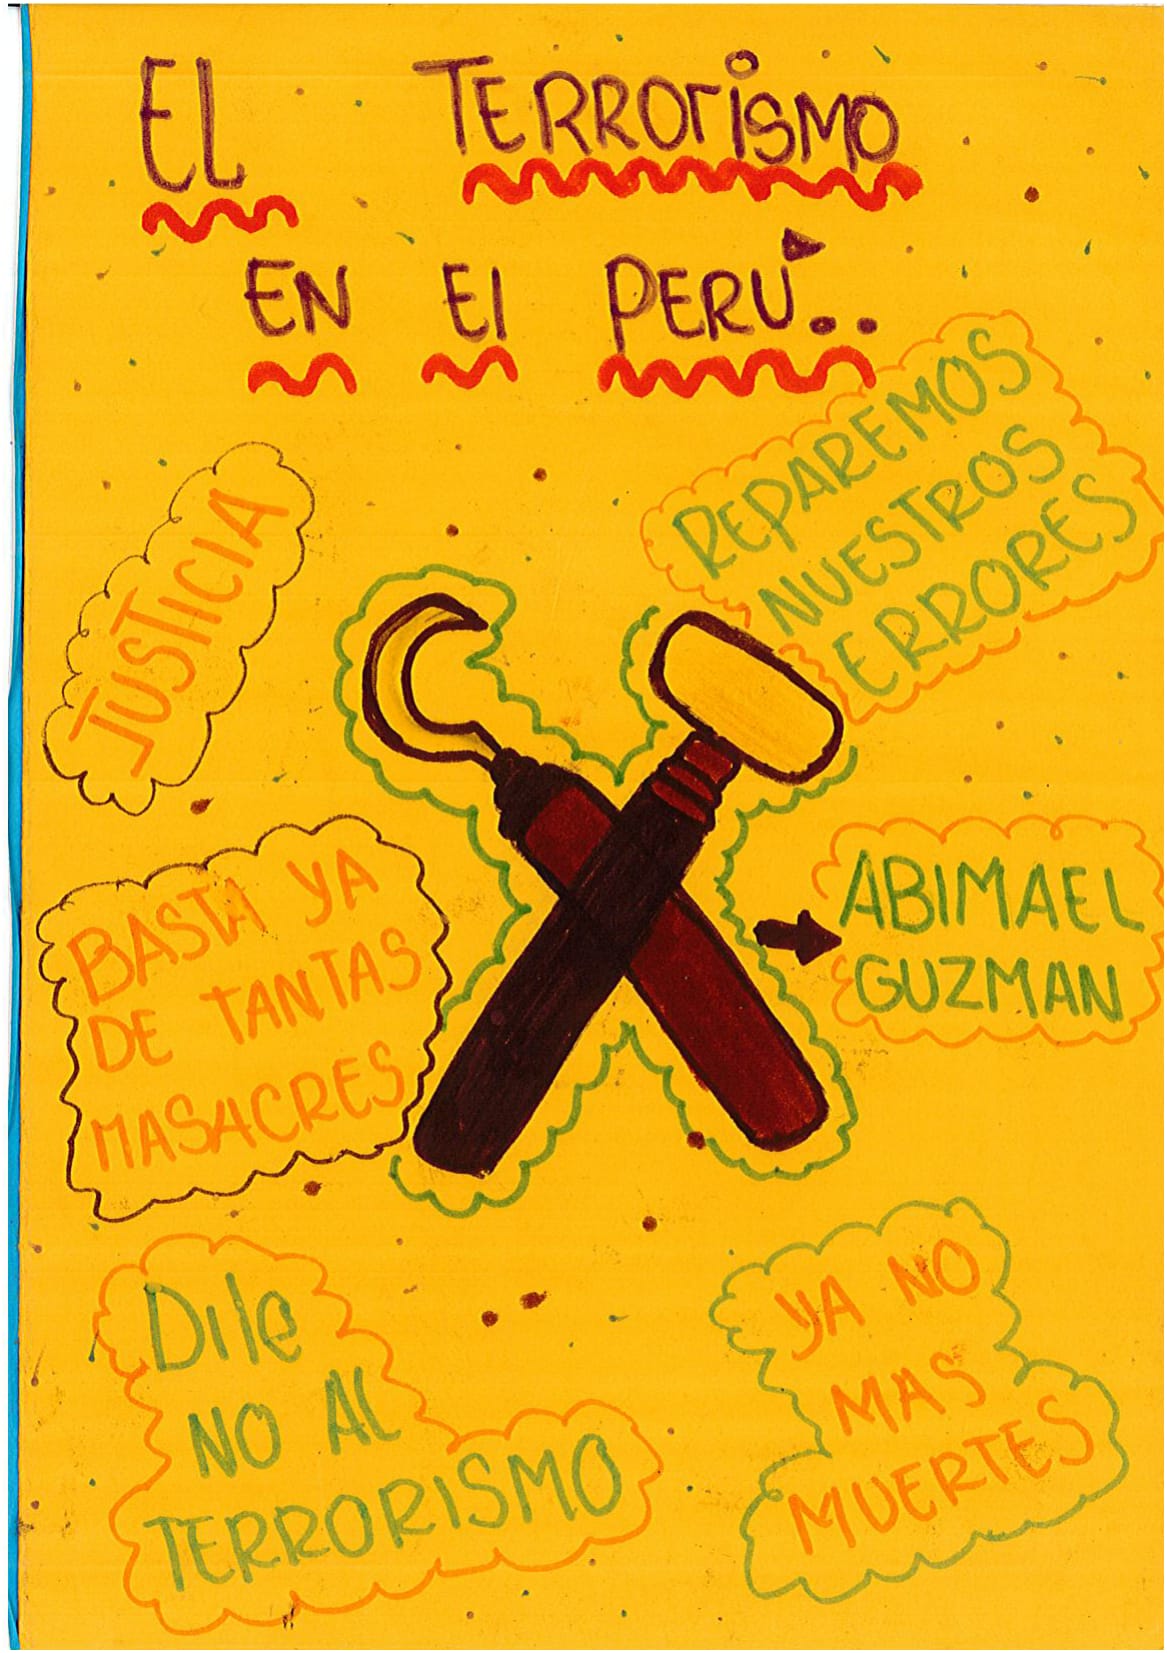 EL TERRORISMO
EN El PERÚ..
REPAREMOS
NUESTROS
ERRORES
JUSTICIA
BASTA YA
DE TANTAS
MASACRES
ABIMAEL
GUZMAN
Dile
NO Al
TERRORISMO
YA NO
MAS
MUERTES